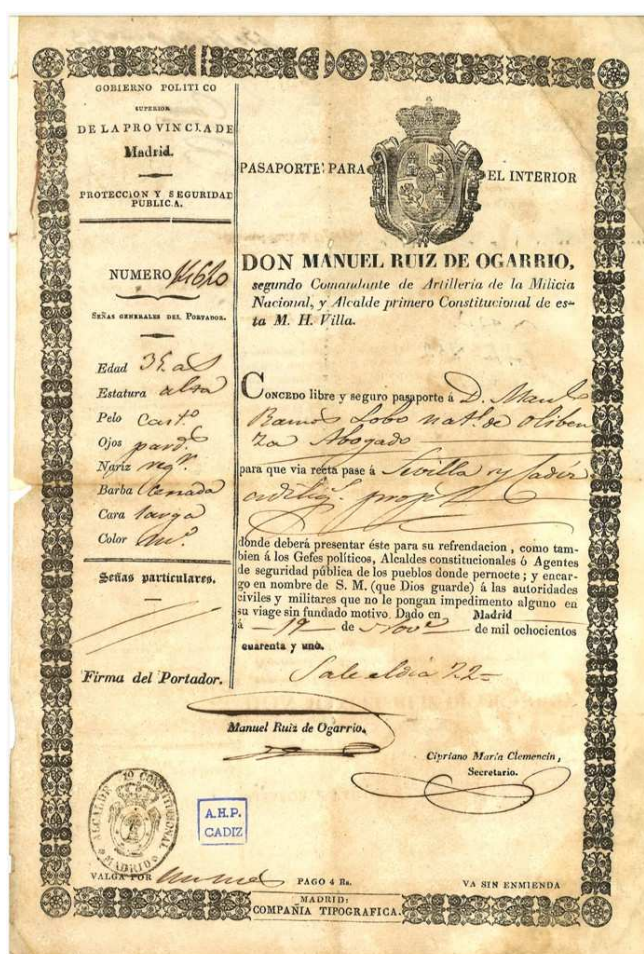 GOBIERNO POLITICO
SUPERIOR
DE LA PROVINCIA DE
Madrid.
PROTECCION Y SEGURIDAD
PUBLICA.
NUMERO
SEÑAS GENERALES DEL PORTADOR.
Edad 35 a.s
Estatura alta
Pelo Cast.o
Ojos pard.s
Nariz reg.r
Barba cerrada
Cara larga
Color
Señas particulares.
Firma del Portador.
PASAPORTE PARA EL INTERIOR
DON MANUEL RUIZ DE OGARRIO,
segundo Comandante de Artillería de la Milicia
Nacional, y Alcalde primero Constitucional de es-
ta M. H. Villa.
CONCEDO libre y seguro pasaporte á D. Man.l
Ramos Lobo nat.l de Oliben
za Abogado
para que via recta pase á Sevilla y Cadiz
donde deberá presentar éste para su refrendacion, como tam-
bien á los Gefes políticos, Alcaldes constitucionales ó Agentes
de seguridad pública de los pueblos donde pernocte; y encar-
go en nombre de S. M. (que Dios guarde) á las autoridades
civiles y militares que no le pongan impedimento alguno en
su viage sin fundado motivo. Dado en Madrid
á 19 de Nov.e de mil ochocientos
cuarenta y uno.
Sale el dia 22
Manuel Ruiz de Ogarrio.
Cipriano María Clemencin,
Secretario.
ALCALDE 1º CONSTITUCIONAL
MADRID
A.H.P.
CADIZ
VALGA POR un mes
PAGO 4 Rs.
VA SIN ENMIENDA
MADRID:
COMPAÑIA TIPOGRAFICA.